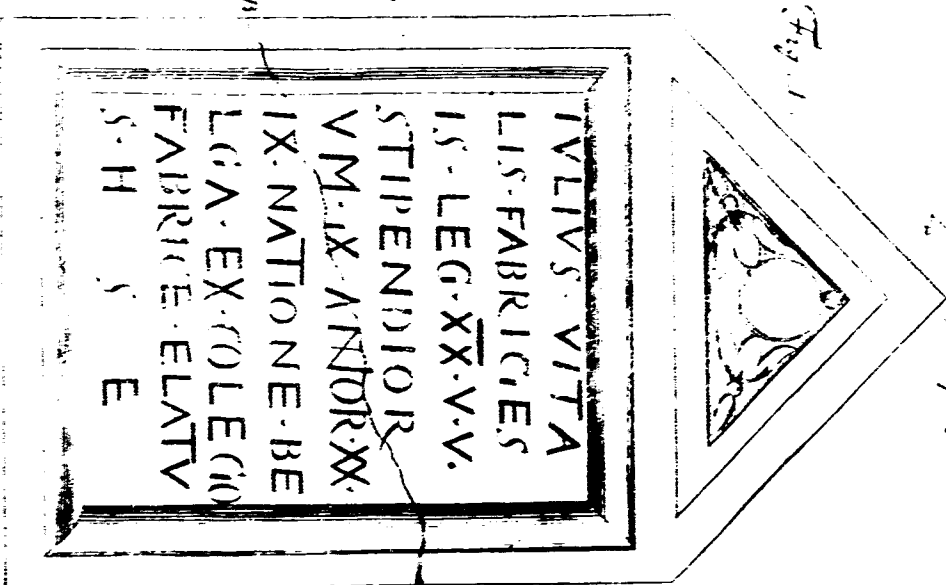 IVLIVS · VITA
LIS · FABRICIES
IS · LEG · XX · V · V ·
STIPENDIOR
VM · IX · ANOR · XX ·
IX · NATIONE · BE
LGA · EX · COLEGIO
FABRICE · ELATV
S · H S E